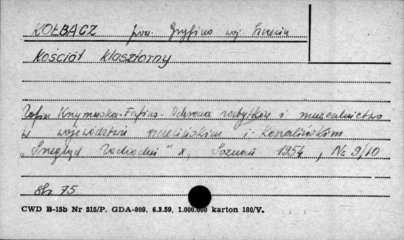 KOŁBACZ pow. Gryfino woj. Szczecin
Kościół klasztorny
Zofia Krzymuska-Fafius. Ochrona zabytków i muzealnictwo
w województwie szczecińskim i koszalińskim
"Przegląd Zachodni" X, Poznań 1954, Nr 9/10
Str. 75
CWD B-15b Nr 515/P. GDA-809, 6.3.59, 1.000.000 karton 180/V.